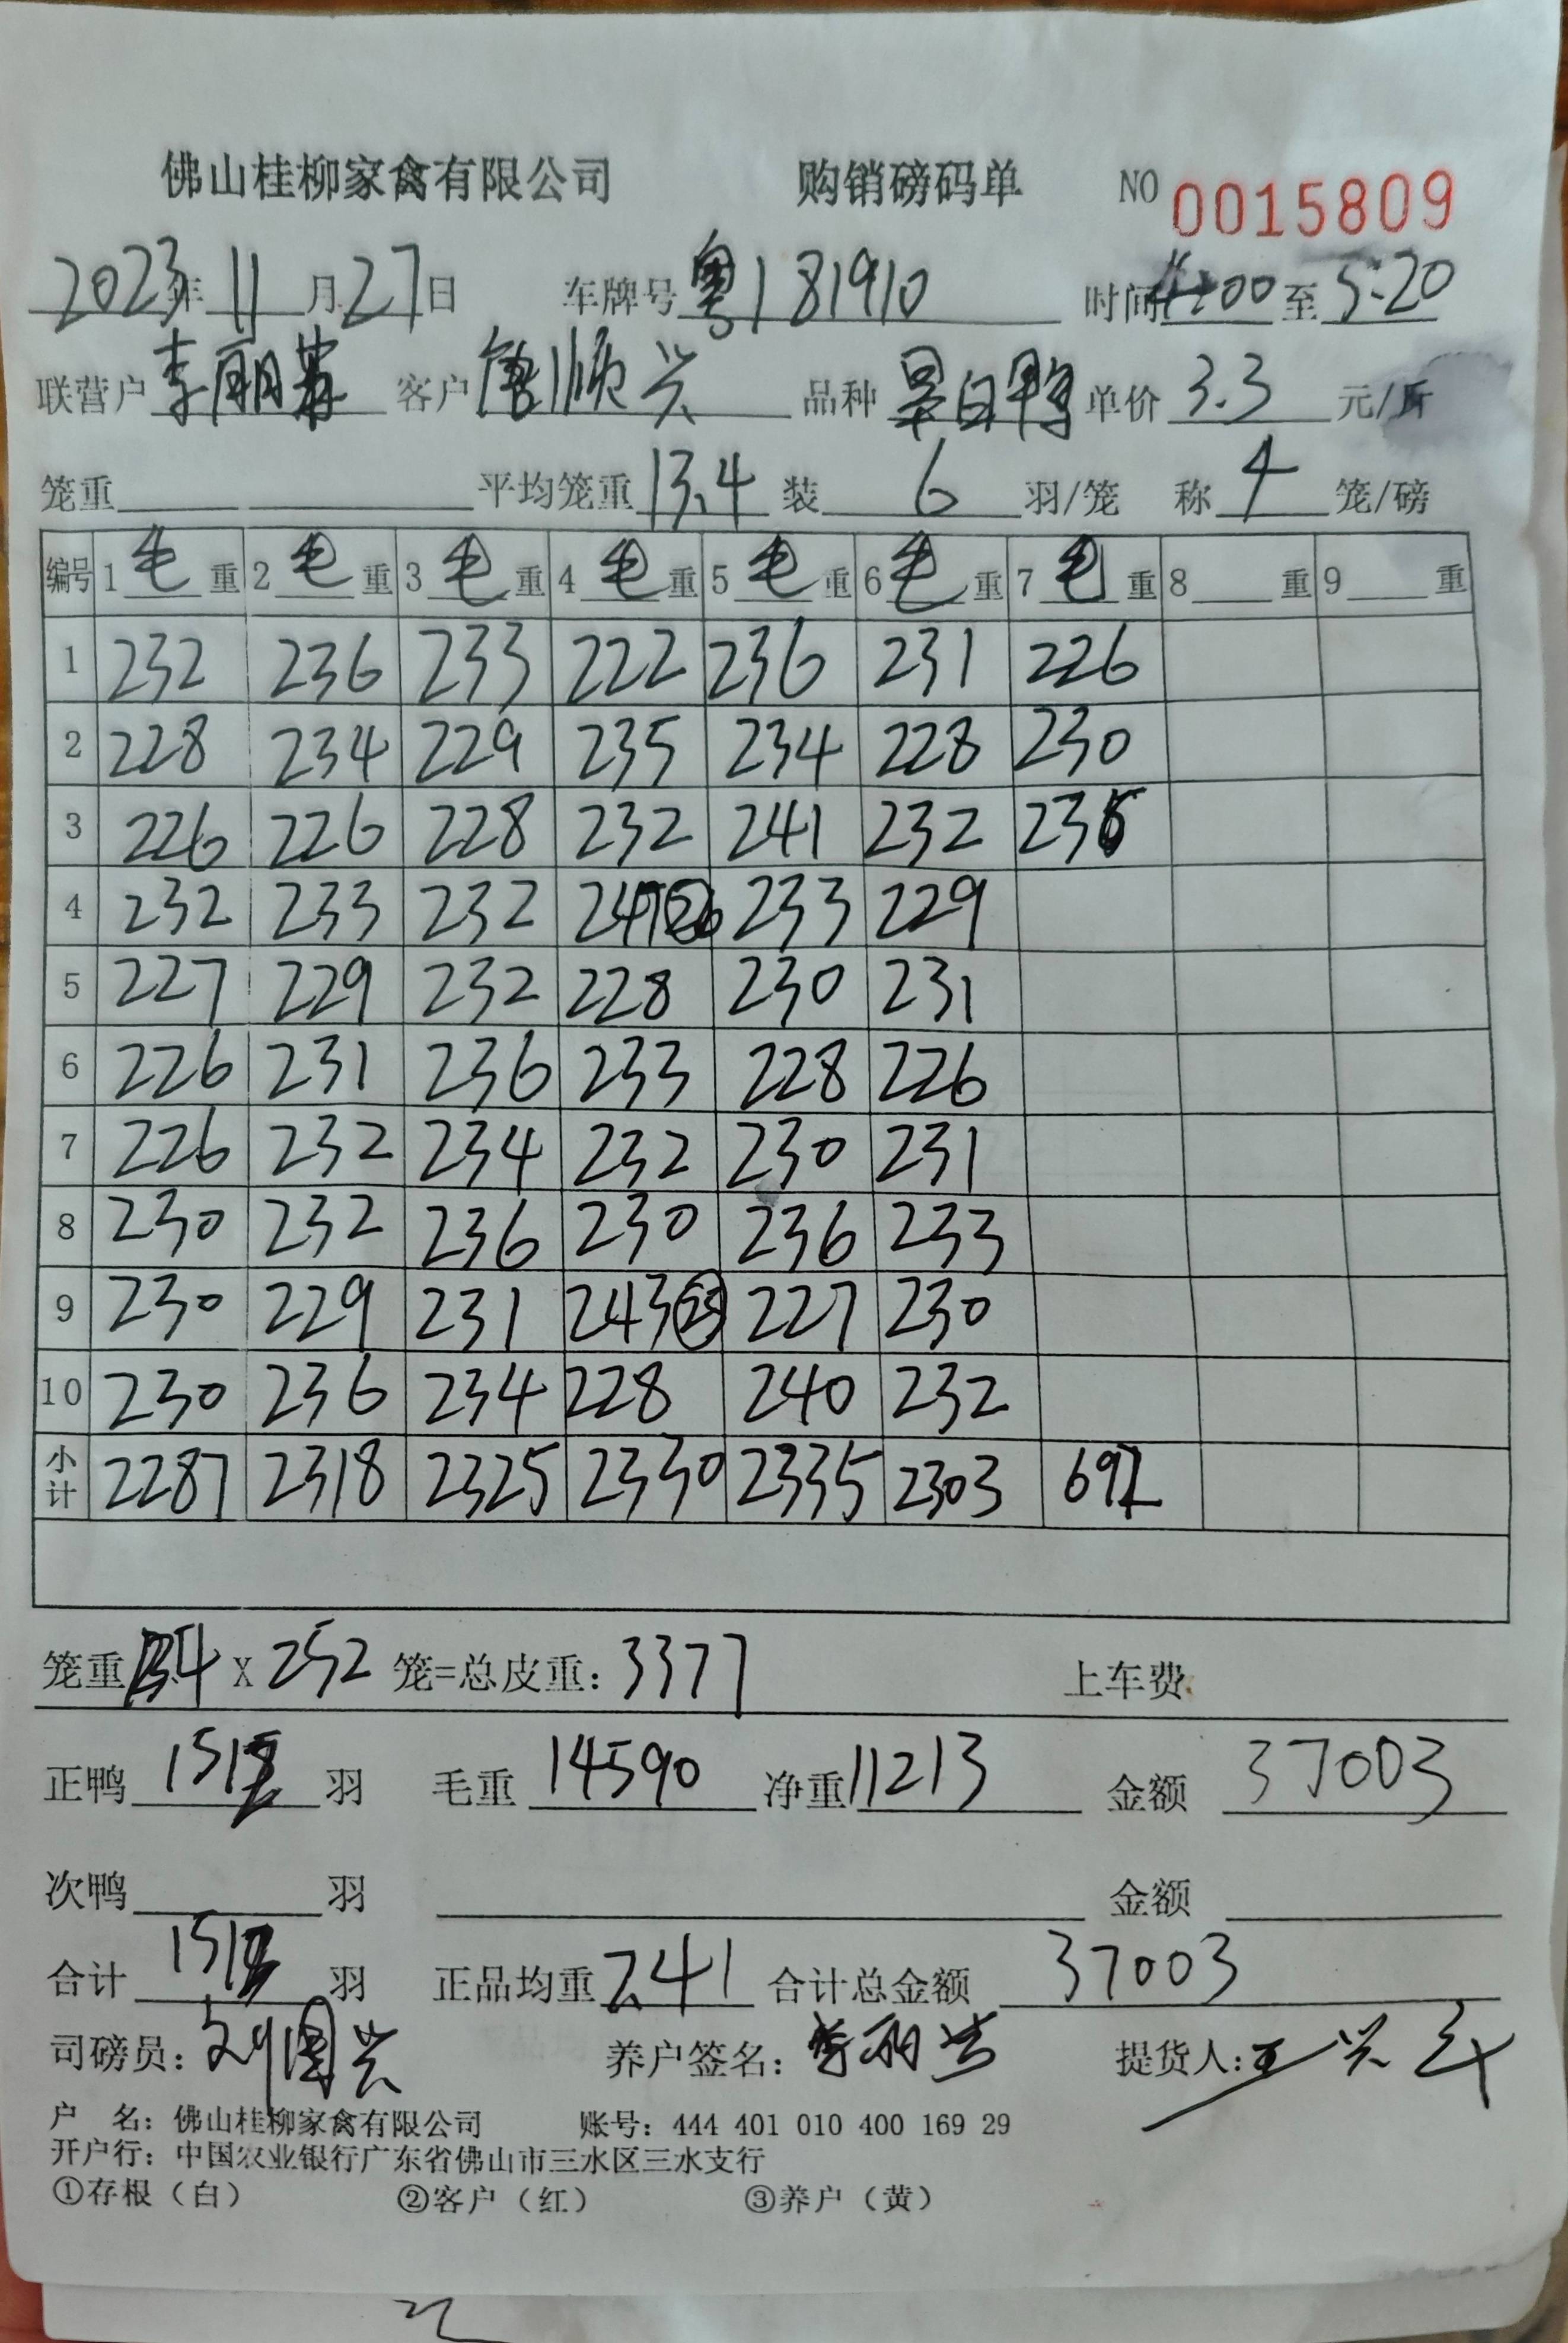 佛山桂柳家禽有限公司 购销磅码单 NO 0015809
2023年 11月27日 车牌号 粤181910 时间 4:00 至 5:20
联营户 李丽 客户 唐顺兴 品种 白鸭 单价 3.3 元/斤
笼重 平均笼重 13.4 装 6 羽/笼 称 4 笼/磅
编号 1毛重 2毛重 3毛重 4毛重 5毛重 6毛重 7毛重 8 重 9 重
1 232 236 233 222 236 231 226
2 228 234 229 235 234 228 230
3 226 226 228 232 241 232 236
4 232 233 232 247㉖ 233 229
5 227 229 232 228 230 231
6 226 231 236 233 228 226
7 226 232 234 232 230 231
8 230 232 236 230 236 233
9 230 229 231 243㉕ 227 230
10 230 236 234 228 240 232
小计 2287 2318 2325 2330 2335 2303 692
笼重 13.4 X 252 笼=总皮重: 3377 上车费
正鸭 1512 羽 毛重 14590 净重 11213 金额 37003
次鸭 羽 金额
合计 羽 正品均重 7.41 合计总金额 37003
司磅员: 刘国兴 养户签名: 李丽 提货人: 王兴
户 名: 佛山桂柳家禽有限公司 账号: 444 401 010 400 169 29
开户行: 中国农业银行广东省佛山市三水区三水支行
①存根（白） ②客户（红） ③养户（黄）